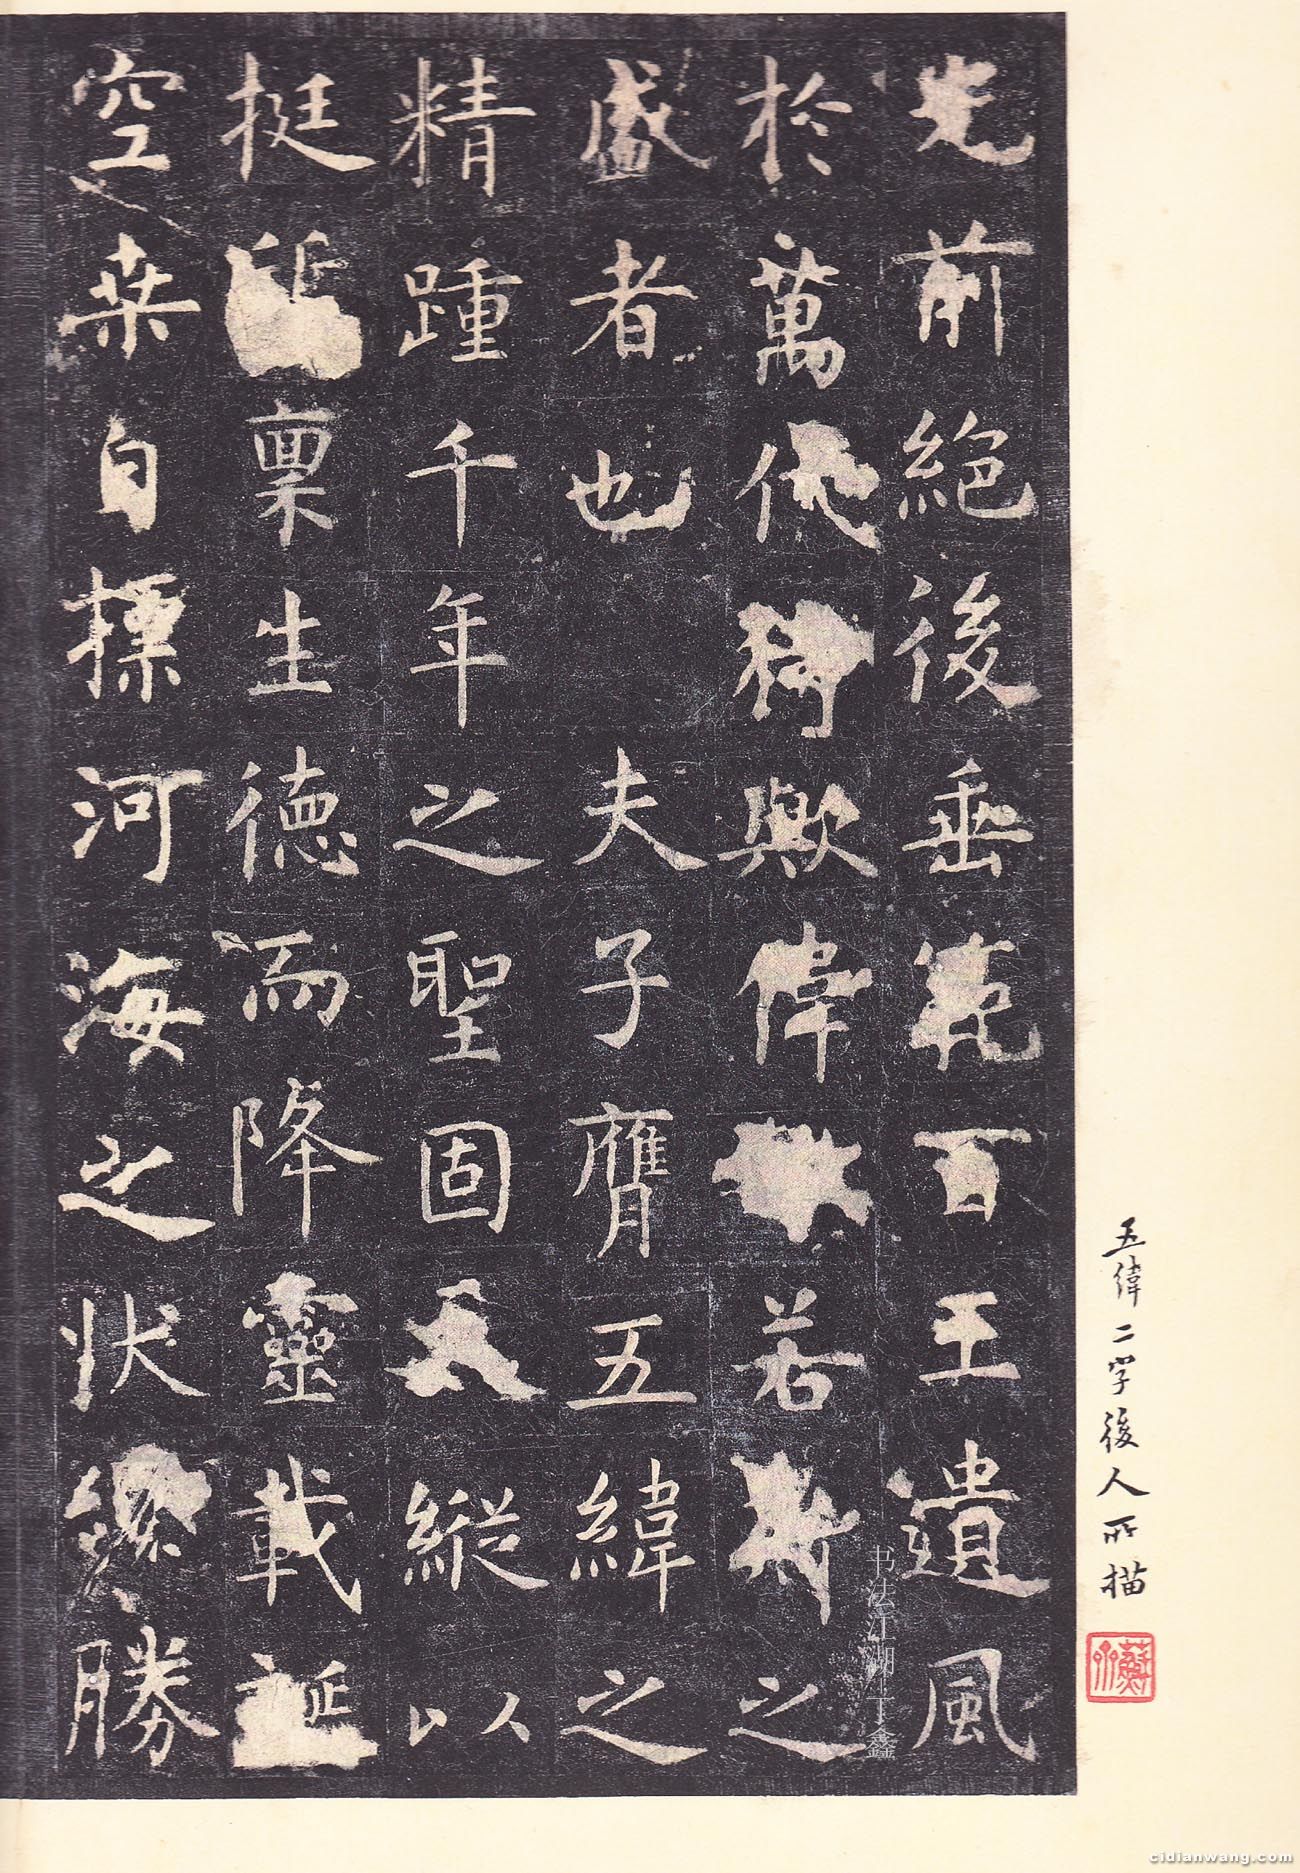 光前絕後垂範百王遺風
於萬代猗歟偉若斯之
盛者也 夫子膺五緯之
精踵千年之聖固天縱以
挺質稟生德而降靈載誕
空桑自標河海之狀纔勝
五緯二字後人所描
书法江湖丁鑫
cidianwang.com